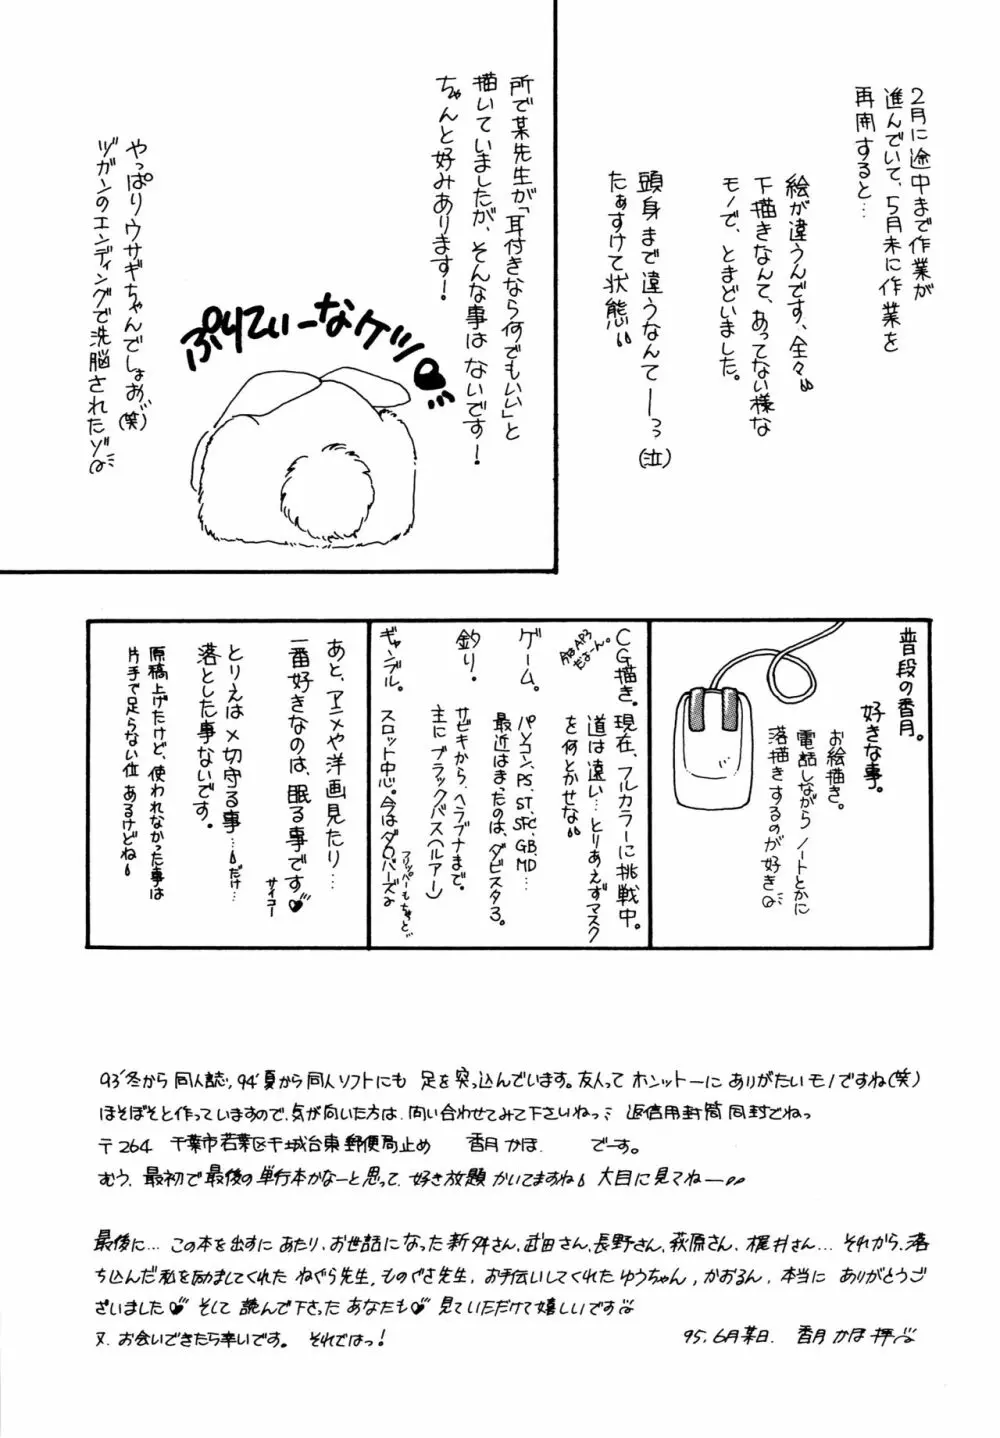 2月に途中まで作業が
進んでいて、5月末に作業を
再開すると…
絵が違うんです、全々
下描きなんて、あってない様な
モノで、とまどいました。
頭身まで違うなんてーっ(泣)
たぁすけて状態
所で某先生が「耳付きなら何でもいい」と
描いていましたが、そんな事はないです！
ちゃんと好みあります！
ぷりてぃーなケツ
やっぱりウサギちゃんでしょお、(笑)
ヅガンのエンディングで洗脳されたゾ
普段の香月。
好きな事。
お絵描き。
電話しながらノートとかに
落描きするのが好き
CG描き。現在、フルカラーに挑戦中。
道は遠い…とりあえずマスク
を何とかせな
ゲーム。パソコン、PS、ST、SFC、GB、MD…
最近はまったのは、ダビスタ3。
釣り。サゼキから、ヘラブナまで。
主にブラックバス(ルアー)
ギャンブル。スロット中心。今はダ○バーズよ
フリッパーもちょっと
あと、アニメや洋画見たり…
一番好きなのは、眠る事です
サイコー
とりえは〆切守る事…だけ…
落とした事ないです。
原稿上げたけど、使われなかった事は
片手で足らない位あるけどね
93'冬から同人誌、94'夏から同人ソフトにも足を突っ込んでいます。友人ってホンットーにありがたいモノですね(笑)
ほそぼそと作っていますので、気が向いた方は、問い合わせてみて下さいねっ 返信用封筒同封でねっ
〒264 千葉市若葉区千城台東郵便局止め 香月かほ. でーす。
むう、最初で最後の単行本かなーと思って、好き放題かいてますね 大目に見てねー
最後に…この本を出すにあたり、お世話になった新舛さん、武田さん、長野さん、萩原さん、梶井さん…それから、落
ち込んだ私を励ましてくれたねぐら先生、ものぐさ先生、お手伝いしてくれたゆうちゃん、かおるん、本当にありがとうご
ざいました そして読んで下さったあなたも 見ていただけて嬉しいです
又、お会いできたら幸いです。それではっ！
95.6月某日. 香月かほ拝